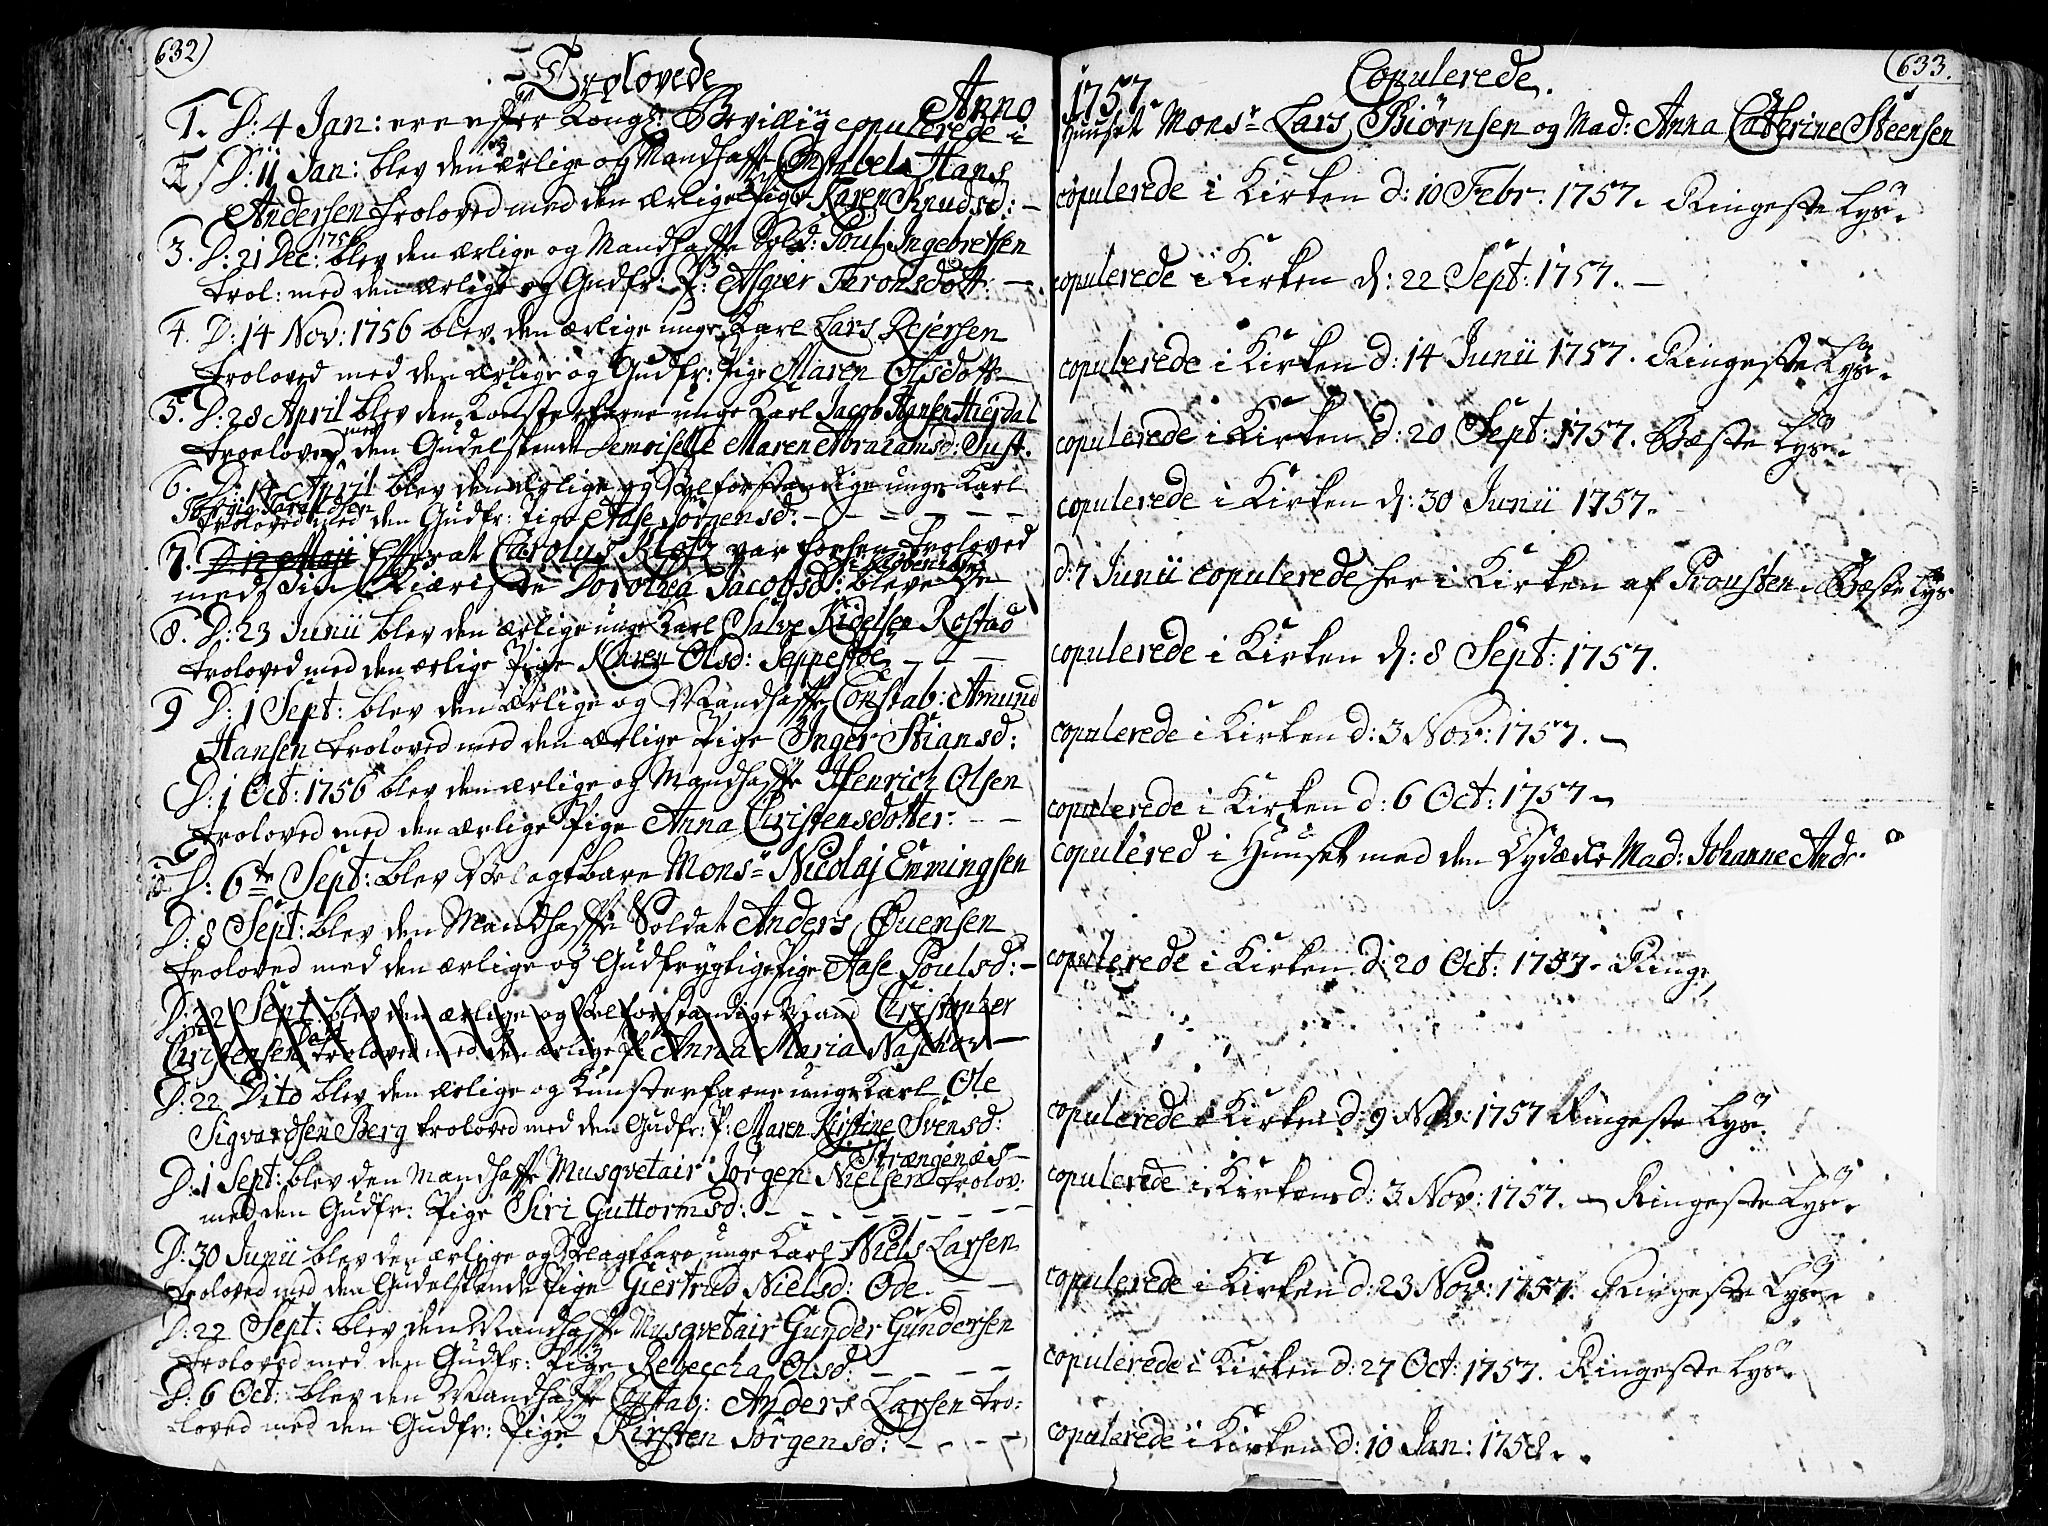 632)
Trolovede
Anno
1. D: 4 Jan: ere efter Kongs: Bevilling copulerede i
2. D: 11 Jan: blev den ærlige og Mandhaffte Constabel Hans
Andersen troloved med den ærlige Pige Karen Knudsd: –
3. D: 21 Dec: 1756 blev den ærlige og Mandhaffte Sold: Poul Ingebretsen
trol: med den ærlige og Gudfr: P: Asgier Taronsdott: –
4. D: 14 Nov: 1756 blev den ærlige unge Karl Lars Rejersen
troloved med den ærlige og Gudfr: Pige Maren Olsdott –
5. D: 28 April blev den Konsterfarne unge Karl Jacob Hansen Hierdal
troeloved med den Gudelskende Demoiselle Maren Abrahamsd: Just.
6. D: 14 April blev den ærlige og Velforstandige unge Karl
Jørgis Tarandsen
troloved med den Gudfr: Pige Aase Jörgensd: – – – – –
7. D: 12 Maji Efterat Carolus Klotz var forhen troloved
med sin Kiæriste Dorothea Jacobsd: i Kiøbenhavn bleve de
8. D: 23 Junii blev den ærlige unge Karl Salve Kidelsen Rostad
troloved med den ærlige Pige Karen Olsd: Seppestøe – – –
9 D: 1 Sept: blev den ærlige og Mandhaffte Constab: Amund
Hansen troloved med den ærlige Pige Inger Stiansd:
D: 1 Oct: 1756 blev den ærlige og Mandhaffte Henrich Olsen
troloved med den ærlige Pige Anna Christensdotter. – –
D: 6te Sept: blev Velagtbare Monsr Nicolaj Emmingsen
D: 8 Sept: blev den Mandhaffte Soldat Anders Ouensen
troloved med den ærlige og Gudfrygtige Pige Aase Poulsd: –
D: 22 Sept: blev den ærlige og Velforstandige Mand Christopher
Christensen Dahl troloved med den ærlige P: Anna Maria Naschov –
D: 22 Dito blev den ærlige og Kunsterfarne unge Karl Ole
Sigvardsen Berg troloved med den Gudfr: P: Maren Kirstine Svensd:
Strængenæs –
D: 1 Sept: blev den Mandhaffte Musqvetair Jörgen Nielsen trolov:
med den Gudfr: Pige Siri Guttormsd: – – – – – – –
D: 30 Junii blev den ærlige og Velagtbare unge Karl Niels Larsen
troloved med den Gudelskende Pige Giertrud Nielsd: Ode. – –
D: 22 Sept: blev den Mandhaffte Musqvetair Gunder Gundersen
troloved med den Gudfr: Pige Rebeccha Olsd: – – – –
D: 6 Oct: blev den Mandhaffte Constab: Anders Larsen tro:
loved med den Gudfr: Pige Kirsten Jörgensd: – – – –
(633.
Copulerede.
1757
Huuset Monsr Lars Biørnsen og Mad: Anna Cathrine Steensen
copulerede i Kirken d: 10 Febr: 1757. Ringeste Lys.
copulerede i Kirken d: 22 Sept: 1757. –
copulerede i Kirken d: 14 Junii 1757. Ringeste Lys.
copulerede i Kirken d: 20 Sept: 1757. Bæste Lys.
copulerede i Kirken d: 30 Junii 1757.
d: 7 Junii copulerede her i Kirken af Provsten. Bæste Lys
copulerede i Kirken d: 8 Sept: 1757.
copulerede i Kirken d: 3 Nov: 1757. –
copulerede i Kirken d: 6 Oct: 1757 –
copulered i Huuset med den Dydædle Mad: Johanne And
copulerede i Kirken d: 20 Oct: 1757. Ringe
copulerede i Kirken d: 9 Nov: 1757 Ringeste Lys.
copulerede i Kirken d: 3 Nov: 1757. – Ringeste Lys.
copulerede i Kirken d: 23 Nov: 1757. Ringeste Lys.
copulerede i Kirken d: 27 Oct: 1757. Ringeste Lys.
copulerede i Kirken d: 10 Jan: 1758.